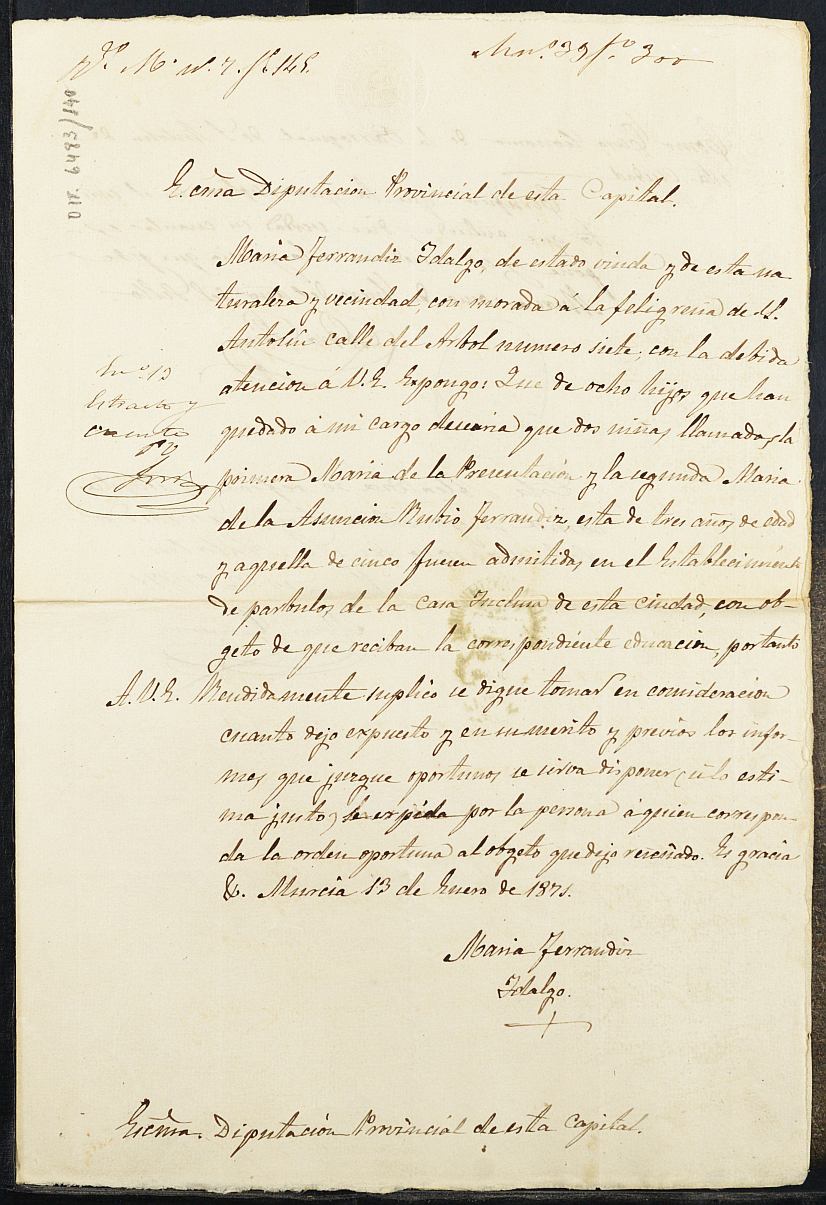 Nº 39 fº 300
DIP. 6483/140
Ecma Diputacion Provincial de esta Capital.
Maria Ferrandiz Idalgo, de estado viuda y de esta na
turaleza y vecindad, con morada á la feligresia de S.
Antolin calle del Arbol numero siete, con la debida
atencion á V.E. Expongo: Que de ocho hijos que han
quedado á mi cargo desearia que dos niñas llamadas, la
primera Maria de la Presentación y la segunda Maria
de la Asuncion Rubio Ferrandiz, esta de tres años de edad
y aquella de cinco fuesen admitidas en el Establecimiento
de parbulos de la casa Inclusa de esta ciudad, con ob-
geto de que reciban la correspondiente educacion, por tanto
A.V.E. Rendidamente suplico se digne tomar en consideracion
cuanto dejo expuesto y en su merito y previos los infor-
mes que juzgue oportunos se sirva disponer si lo esti-
ma justo, se expida por la persona á quien correspon-
da la orden oportuna al obgeto que dejo reseñado. Es gracia
&. Murcia 13 de Enero de 1871.
Maria Ferrandiz
Idalgo.
Enº 13
Estracto y
cuenta
Escma. Diputación Provincial de esta Capital.